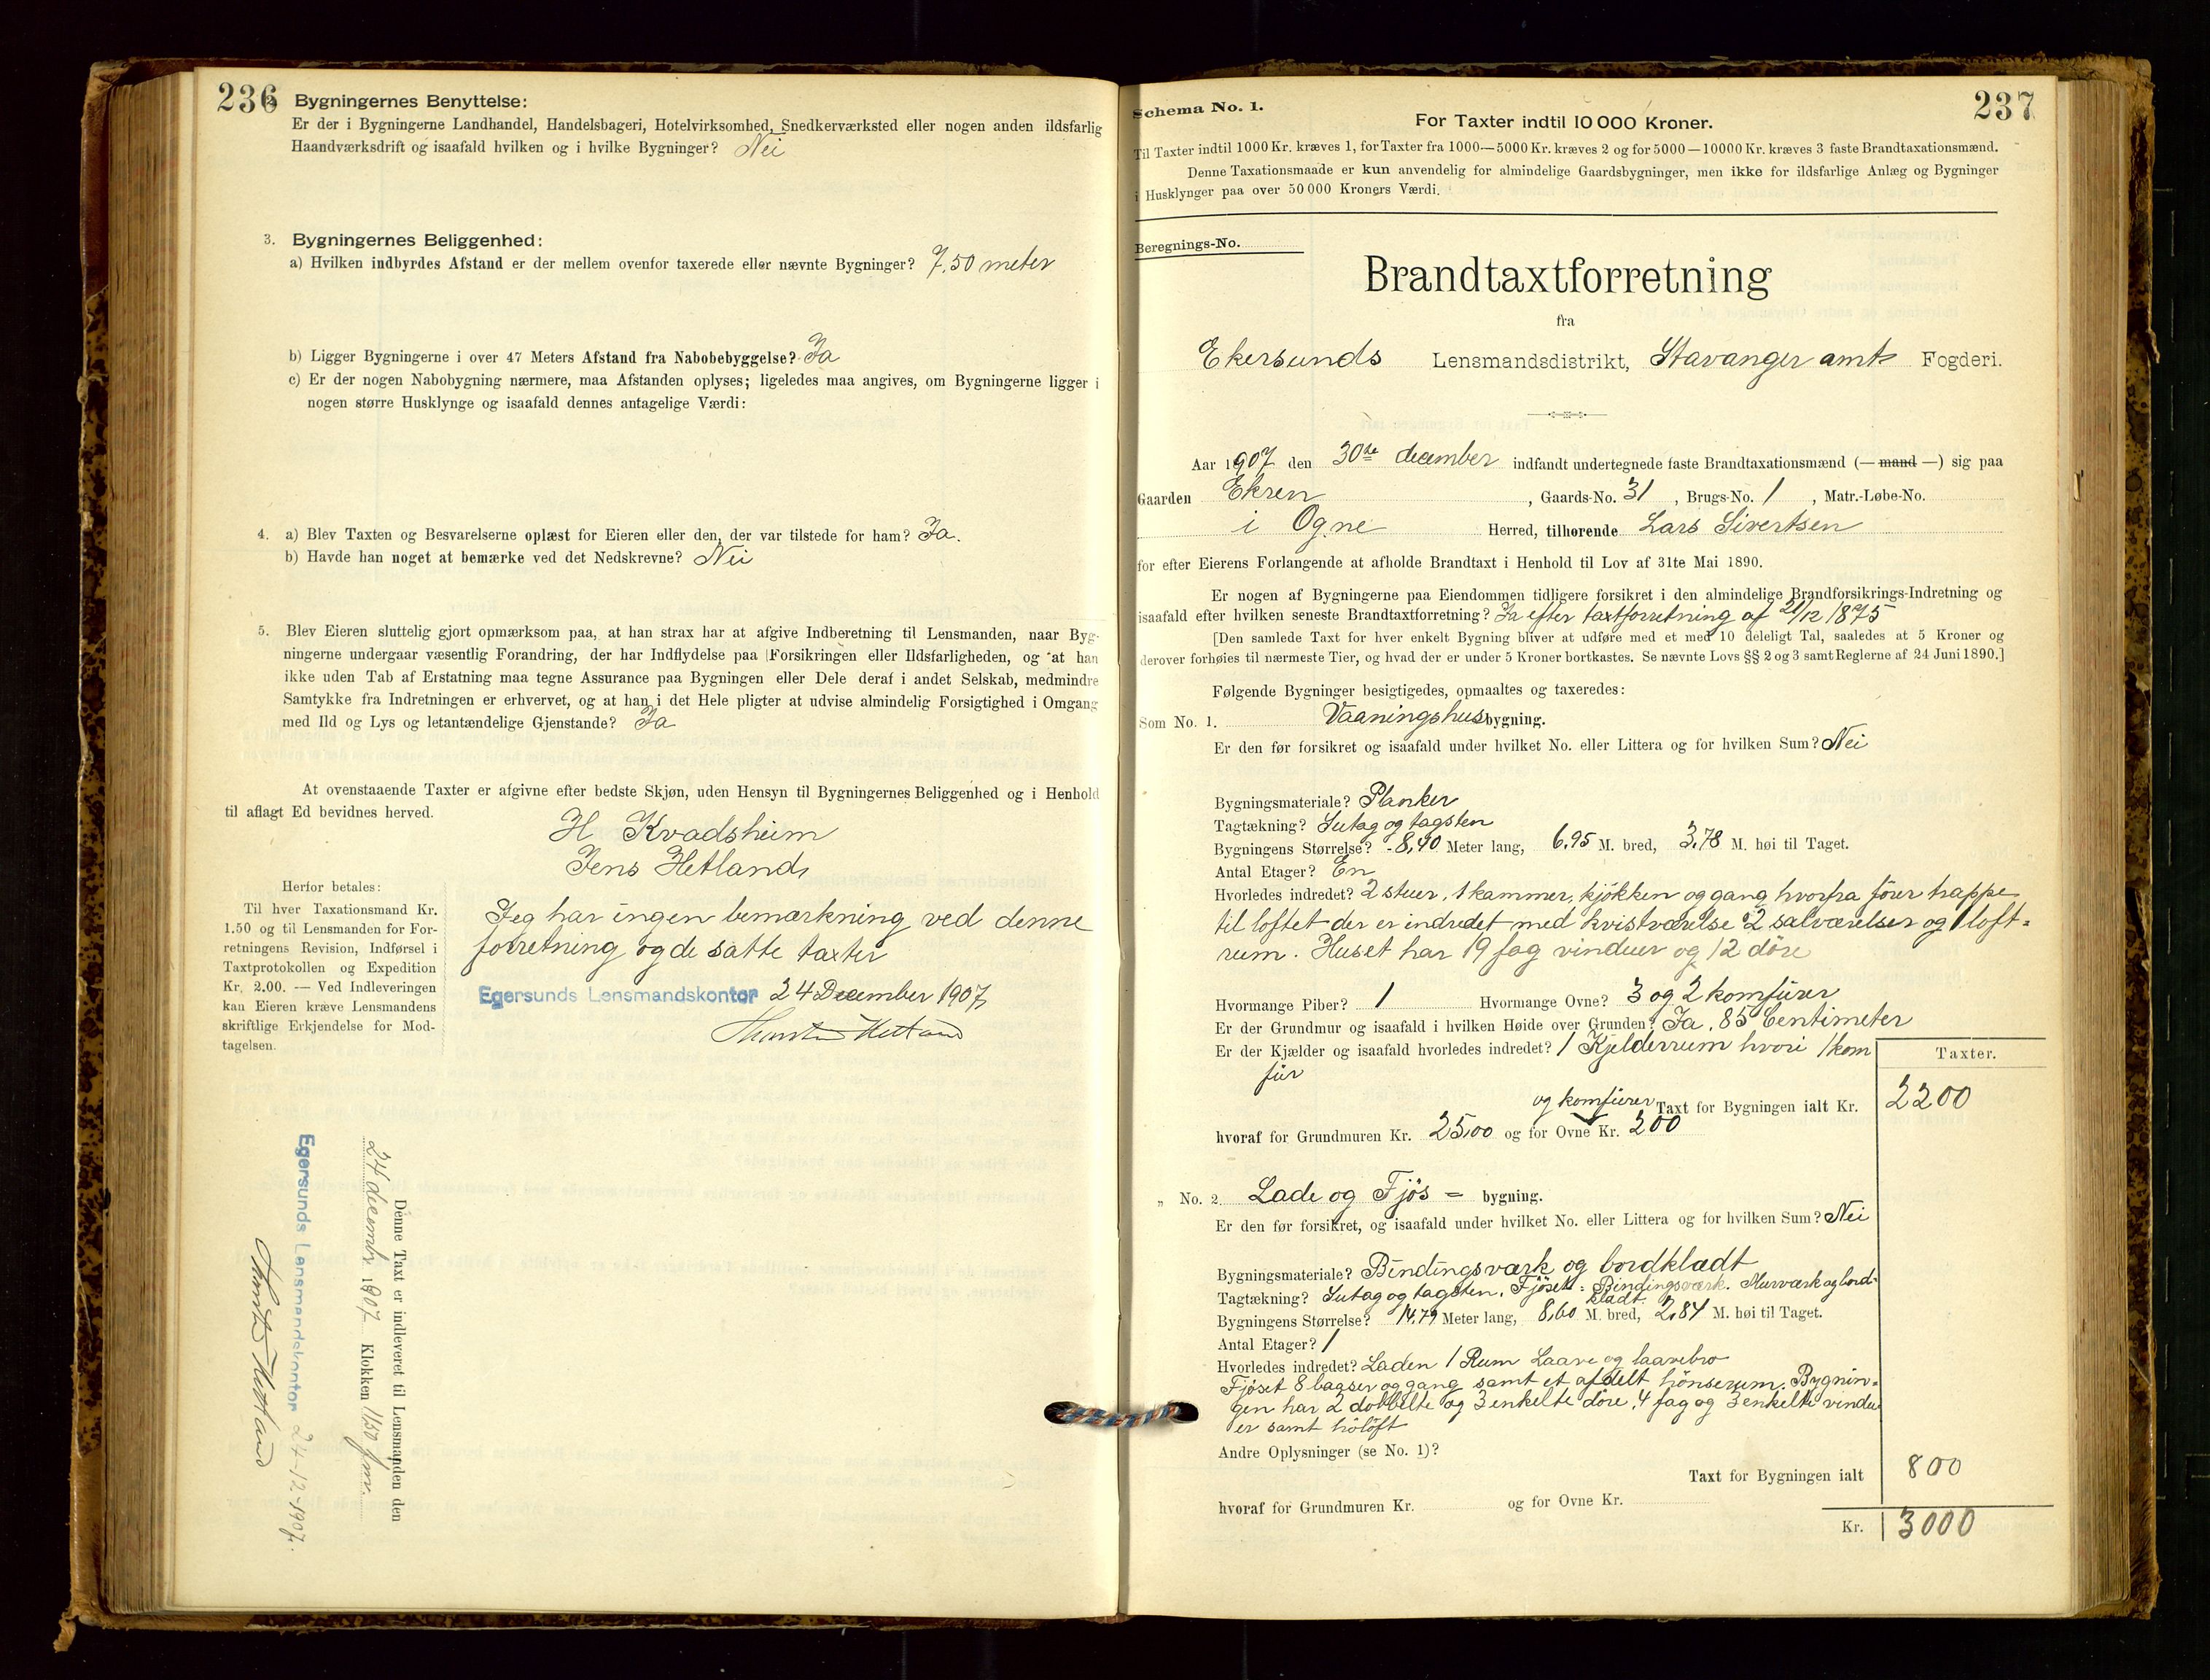 236
2. Bygningernes Benyttelse:
Er der i Bygningerne Landhandel, Handelsbageri, Hotelvirksomhed, Snedkerværksted eller nogen anden ildsfarlig
Haandværksdrift og isaafald hvilken og i hvilke Bygninger? Nei
3. Bygningernes Beliggenhed:
a) Hvilken indbyrdes Afstand er der mellem ovenfor taxerede eller nævnte Bygninger? 7,50 meter
b) Ligger Bygningerne i over 47 Meters Afstand fra Nabobebyggelse? Ja
c) Er der nogen Nabobygning nærmere, maa Afstanden oplyses; ligeledes maa angives, om Bygningerne ligger i
nogen større Husklynge og isaafald dennes antagelige Værdi:
4. a) Blev Taxten og Besvarelserne oplæst for Eieren eller den, der var tilstede for ham? Ja.
b) Havde han noget at bemærke ved det Nedskrevne? Nei
5. Blev Eieren sluttelig gjort opmærksom paa, at han strax har at afgive Indberetning til Lensmanden, naar Byg-
ningerne undergaar væsentlig Forandring, der har Indflydelse paa Forsikringen eller Ildsfarligheden, og at han
ikke uden Tab af Erstatning maa tegne Assurance paa Bygningen eller Dele deraf i andet Selskab, medmindre
Samtykke fra Indretningen er erhvervet, og at han i det Hele pligter at udvise almindelig Forsigtighed i Omgang
med Ild og Lys og letantændelige Gjenstande? Ja
At ovenstaaende Taxter er afgivne efter bedste Skjøn, uden Hensyn til Bygningernes Beliggenhed og i Henhold
til aflagt Ed bevidnes herved.
H Kvadsheim
Jens Hetland
Herfor betales:
Til hver Taxationsmand Kr.
1.50 og til Lensmanden for For-
retningens Revision, Indførsel i
Taxtprotokollen og Expedition
Kr. 2.00. — Ved Indleveringen
kan Eieren kræve Lensmandens
skriftlige Erkjendelse for Mod-
tagelsen.
Jeg har ingen bemærkning ved denne
forretning og de satte taxter
Egersunds Lensmandskontor 24 December 1907
Hetland
Denne Taxt er indleveret til Lensmanden den
24 decembr 1907 Klokken 11 30 fmr.
Egersunds Lensmandskontor 24-12-1907.
Hetland
237
Schema No. 1.
For Taxter indtil 10 000 Kroner.
Til Taxter indtil 1000 Kr. kræves 1, for Taxter fra 1000—5000 Kr. kræves 2 og for 5000—10000 Kr. kræves 3 faste Brandtaxationsmænd.
Denne Taxationsmaade er kun anvendelig for almindelige Gaardsbygninger, men ikke for ildsfarlige Anlæg og Bygninger
i Husklynger paa over 50 000 Kroners Værdi.
Beregnings-No.
Brandtaxtforretning
fra
Ekersunds Lensmandsdistrikt, Stavanger amts Fogderi.
Aar 1907 den 30te december indfandt undertegnede faste Brandtaxationsmænd (— mand —) sig paa
Gaarden Ekren, Gaards-No. 31, Brugs-No. 1, Matr.-Løbe-No.
i Ogne Herred, tilhørende Lars Sivertsen
for efter Eierens Forlangende at afholde Brandtaxt i Henhold til Lov af 31te Mai 1890.
Er nogen af Bygningerne paa Eiendommen tidligere forsikret i den almindelige Brandforsikrings-Indretning og
isaafald efter hvilken seneste Brandtaxtforretning? Ja efter taxtforretning af 21/12 1875
[Den samlede Taxt for hver enkelt Bygning bliver at udføre med et med 10 deleligt Tal, saaledes at 5 Kroner og
derover forhøies til nærmeste Tier, og hvad der er under 5 Kroner bortkastes. Se nævnte Lovs §§ 2 og 3 samt Reglerne af 24 Juni 1890.]
Følgende Bygninger besigtigedes, opmaaltes og taxeredes:
Som No. 1. Vaaningshusbygning.
Er den før forsikret og isaafald under hvilket No. eller Littera og for hvilken Sum? Nei
Bygningsmateriale? Planker
Tagtækning? Sutag og tagsten
Bygningens Størrelse? 8,40 Meter lang, 6,95 M. bred, 3,78 M. høi til Taget.
Antal Etager? En
Hvorledes indredet? 2 stuer, 1 kammer, kjøkken og gang hvorfra fører trappe
til loftet der er indredet med kvistværelse 2 salværelser og 1 loft=
rum. Huset har 19 fag vinduer og 12 døre
Hvormange Piber? 1 Hvormange Ovne? 3 og 2 komfürer
Er der Grundmur og isaafald i hvilken Høide over Grunden? Ja, 85 Centimeter
Er der Kjælder og isaafald hvorledes indredet? 1 Kjelderrum hvori 1 kom
für
Taxter.
og komfürer Taxt for Bygningen ialt Kr. 2200
hvoraf for Grundmuren Kr. 25,00 og for Ovne Kr. 200
„ No. 2. Lade og Fjøs = bygning.
Er den før forsikret, og isaafald under hvilket No. eller Littera og for hvilken Sum? Nei
Bygningsmateriale? Bindingsværk og bordkladt
Tagtækning? Sutag og tagsten. Fjøset: Bindingsværk. Murværk og bord-
kladt.
Bygningens Størrelse? 14,79 Meter lang, 8,60 M. bred, 2,84 M. høi til Taget.
Antal Etager? 1
Hvorledes indredet? Laden 1 Rum Laave og laavebro
Fjøset 8 baaser og gang samt et afdelt hønserum. Bygnin=
gen har 2 dobbelte og 3 enkelte døre, 4 fag og 3 enkelte vindu
er samt høloft
Andre Oplysninger (se No. 1)?
Taxt for Bygningen ialt 800
hvoraf for Grundmuren Kr. og for Ovne Kr.
Kr. 3000